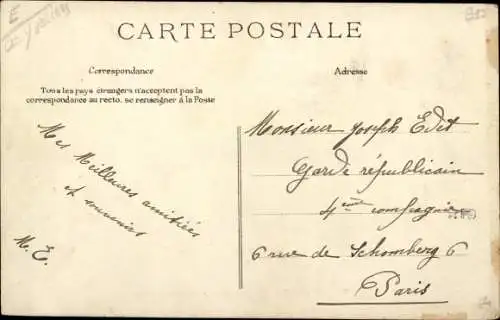 CARTE POSTALE
Correspondance
Tous les pays étrangers n'acceptent pas la
correspondance au recto, se renseigner à la Poste
Mes Meilleures amitiés
et souvenirs
M. E.
Adresse
Monsieur Joseph Edet
Garde républicain
4ème compagnie
6 rue de Schomberg 6
Paris